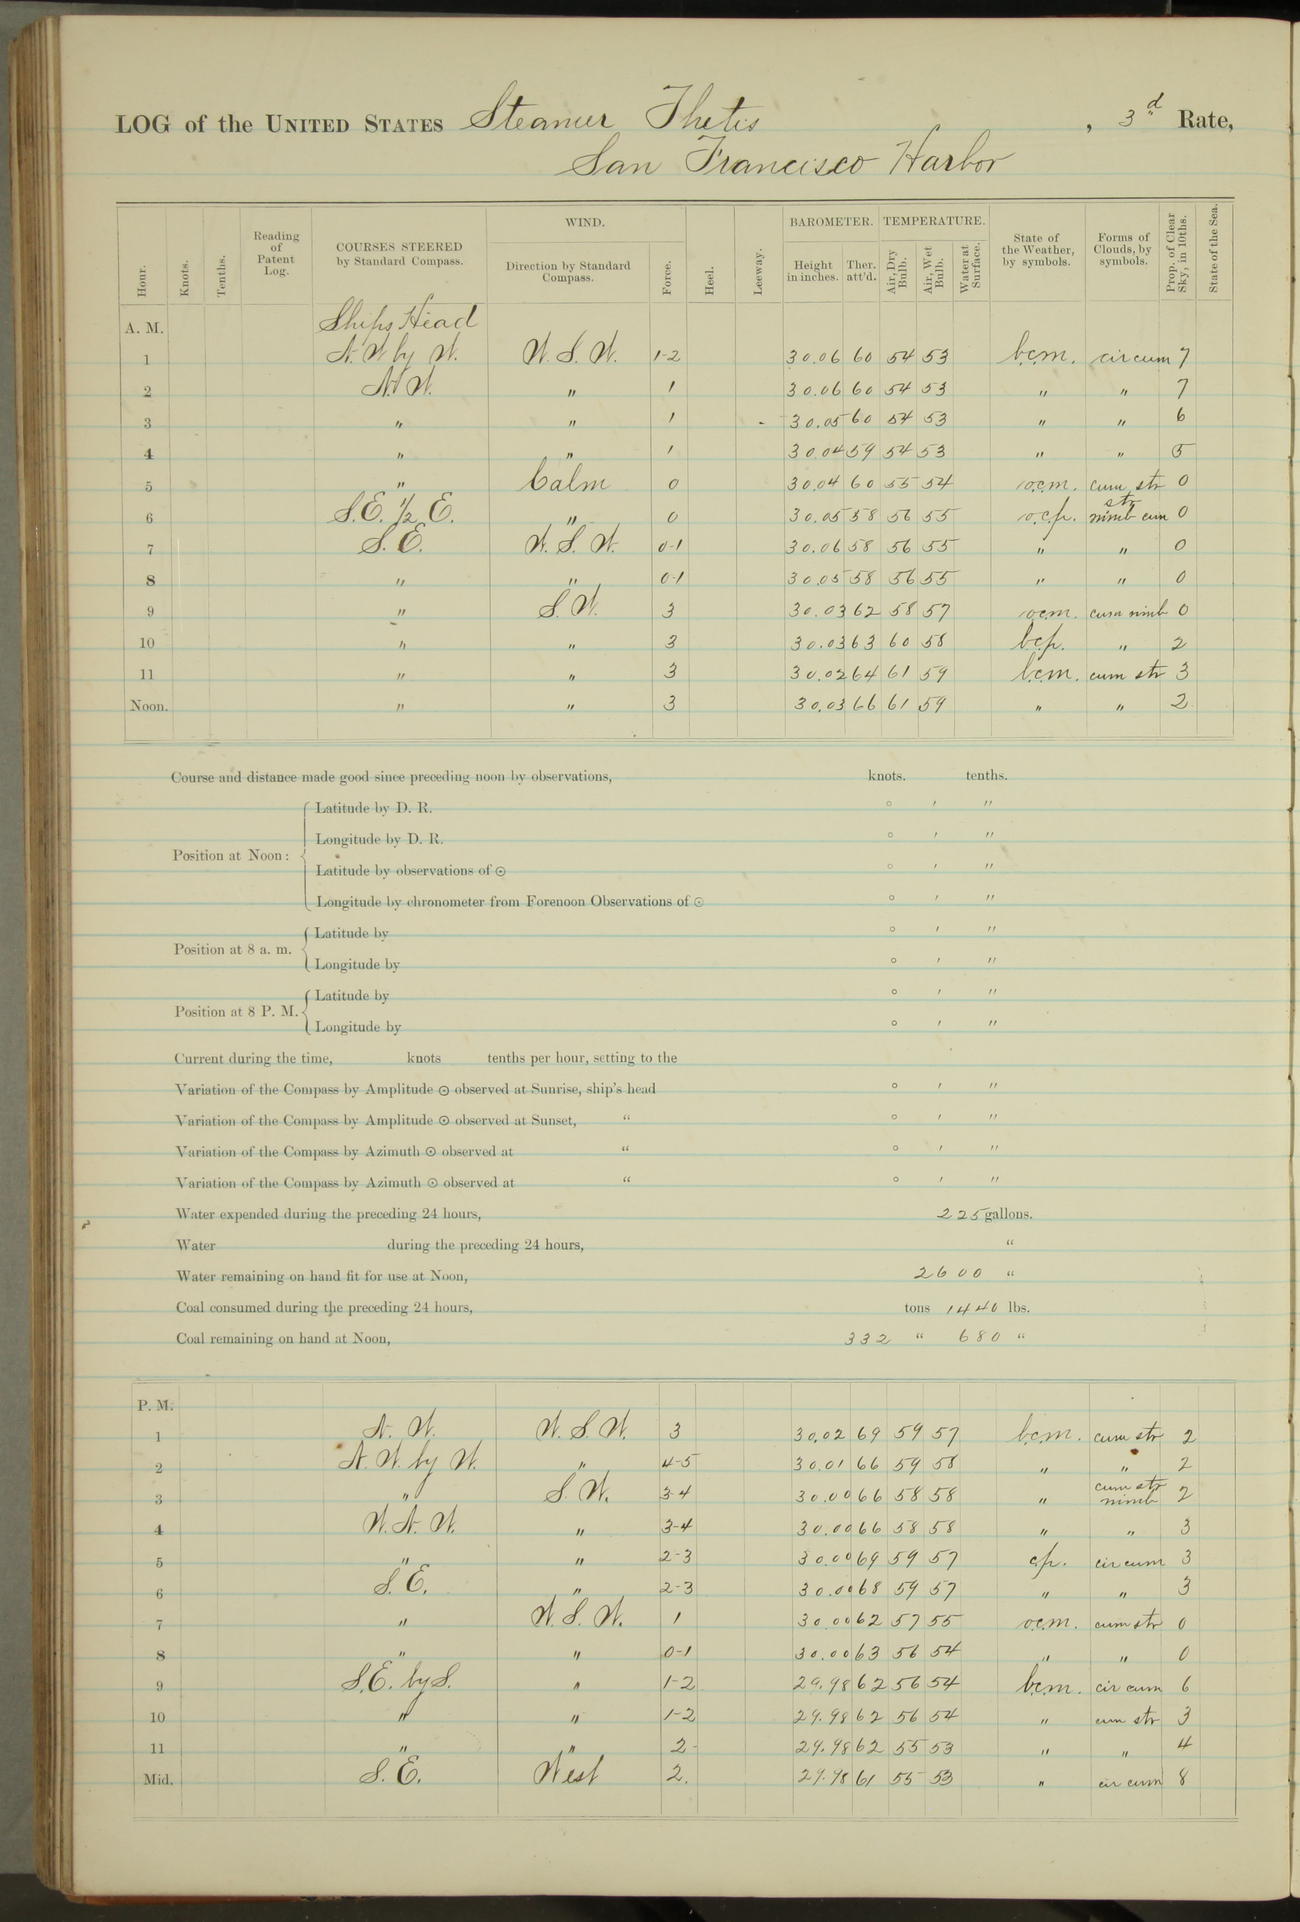 LOG of the UNITED STATES Steamer Thetis, 3d Rate,
San Francisco Harbor
Hour. Knots. Tenths. Reading of Patent Log. COURSES STEERED by Standard Compass. WIND. Direction by Standard Compass. Force. Heel. Leeway. BAROMETER. Height in inches. Ther. att'd. TEMPERATURE. Air, Dry Bulb. Air, Wet Bulb. Water at Surface. State of the Weather, by symbols. Forms of Clouds, by symbols. Prop. of Clear Sky, in 10ths. State of the Sea.
A. M. Ships Head
1 N.W by W. W. S. W. 1-2 30.06 60 54 53 b.c.m. cir cum 7
2 N.W. " 1 30.06 60 54 53 " " 7
3 " " 1 30.05 60 54 53 " " 6
4 " " 1 30.04 59 54 53 " " 5
5 " Calm 0 30.04 60 55 54 o.c.m. cum str 0
6 S.E. 1/2 E. " 0 30.05 58 56 55 o.c.p. str nimb cum 0
7 S.E. W. S. W. 0-1 30.06 58 56 55 " " 0
8 " " 0-1 30.05 58 56 55 " " 0
9 " S.W. 3 30.03 62 58 57 o.c.m. cum nimb 0
10 " " 3 30.03 63 60 58 b.c.p. " 2
11 " " 3 30.02 64 61 59 b.c.m. cum str 3
Noon. " " 3 30.03 66 61 59 " " 2
Course and distance made good since preceding noon by observations, knots. tenths.
Position at Noon: Latitude by D. R. ° ' "
Longitude by D. R. ° ' "
Latitude by observations of ⊙ ° ' "
Longitude by chronometer from Forenoon Observations of ⊙ ° ' "
Position at 8 a. m. Latitude by ° ' "
Longitude by ° ' "
Position at 8 P. M. Latitude by ° ' "
Longitude by ° ' "
Current during the time, knots tenths per hour, setting to the
Variation of the Compass by Amplitude ⊙ observed at Sunrise, ship's head ° ' "
Variation of the Compass by Amplitude ⊙ observed at Sunset, " ° ' "
Variation of the Compass by Azimuth ⊙ observed at " ° ' "
Variation of the Compass by Azimuth ⊙ observed at " ° ' "
Water expended during the preceding 24 hours, 225 gallons.
Water during the preceding 24 hours, "
Water remaining on hand fit for use at Noon, 2600 "
Coal consumed during the preceding 24 hours, tons 1440 lbs.
Coal remaining on hand at Noon, 332 " 680 "
P. M.
1 N. W. W. S. W. 3 30.02 69 59 57 b.c.m. cum str 2
2 N. W. by W. " 4-5 30.01 66 59 58 " " 2
3 " S. W. 3-4 30.00 66 58 58 " cum str nimb 2
4 W. N. W. " 3-4 30.00 66 58 58 " " 3
5 " " 2-3 30.00 69 59 57 c.p. cir cum 3
6 S.E. " 2-3 30.00 68 59 57 " " 3
7 " W. S. W. 1 30.00 62 57 55 o.c.m. cum str 0
8 " " 0-1 30.00 63 56 54 " " 0
9 S.E. by S. " 1-2 29.98 62 56 54 b.c.m. cir cum 6
10 " " 1-2 29.98 62 56 54 " cum str 3
11 " " 2 29.98 62 55 53 " " 4
Mid. S. E. West 2. 29.98 61 55 53 " cir cum 8